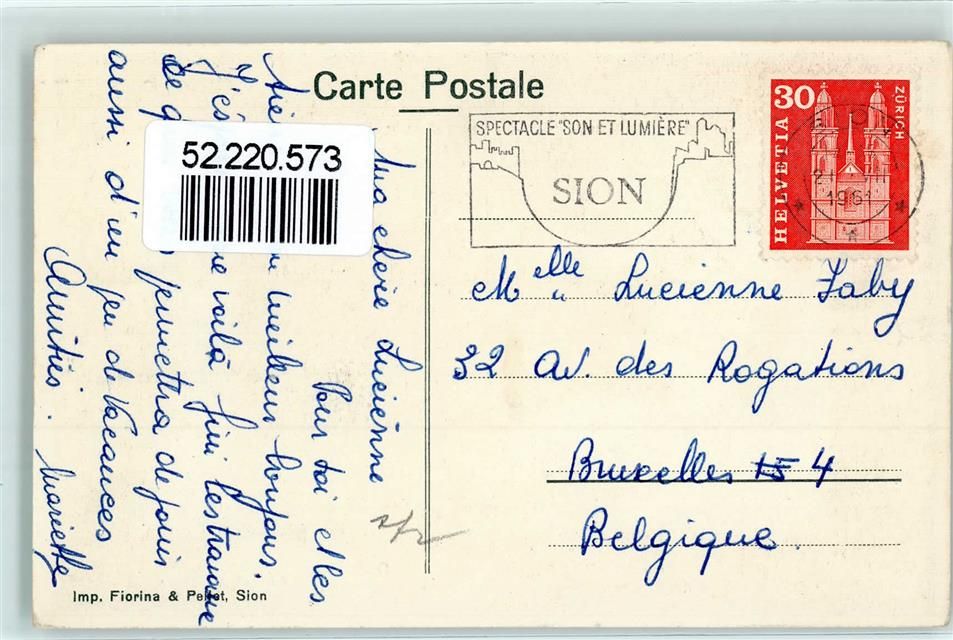 Carte Postale
SPECTACLE "SON ET LUMIÈRE"
SION
30
HELVETIA
ZÜRICH
1961
52.220.573
Ma chère Lucienne
Pour toi et les
meilleurs toujours.
voilà fini les travaux
permettra de jouir
aussi d'un peu de Vacances
Amitiés.
Mariette
Melle Lucienne Jaby
32 Av. des Rogations
Bruxelles 15 4
Belgique.
Imp. Fiorina & Pellet, Sion